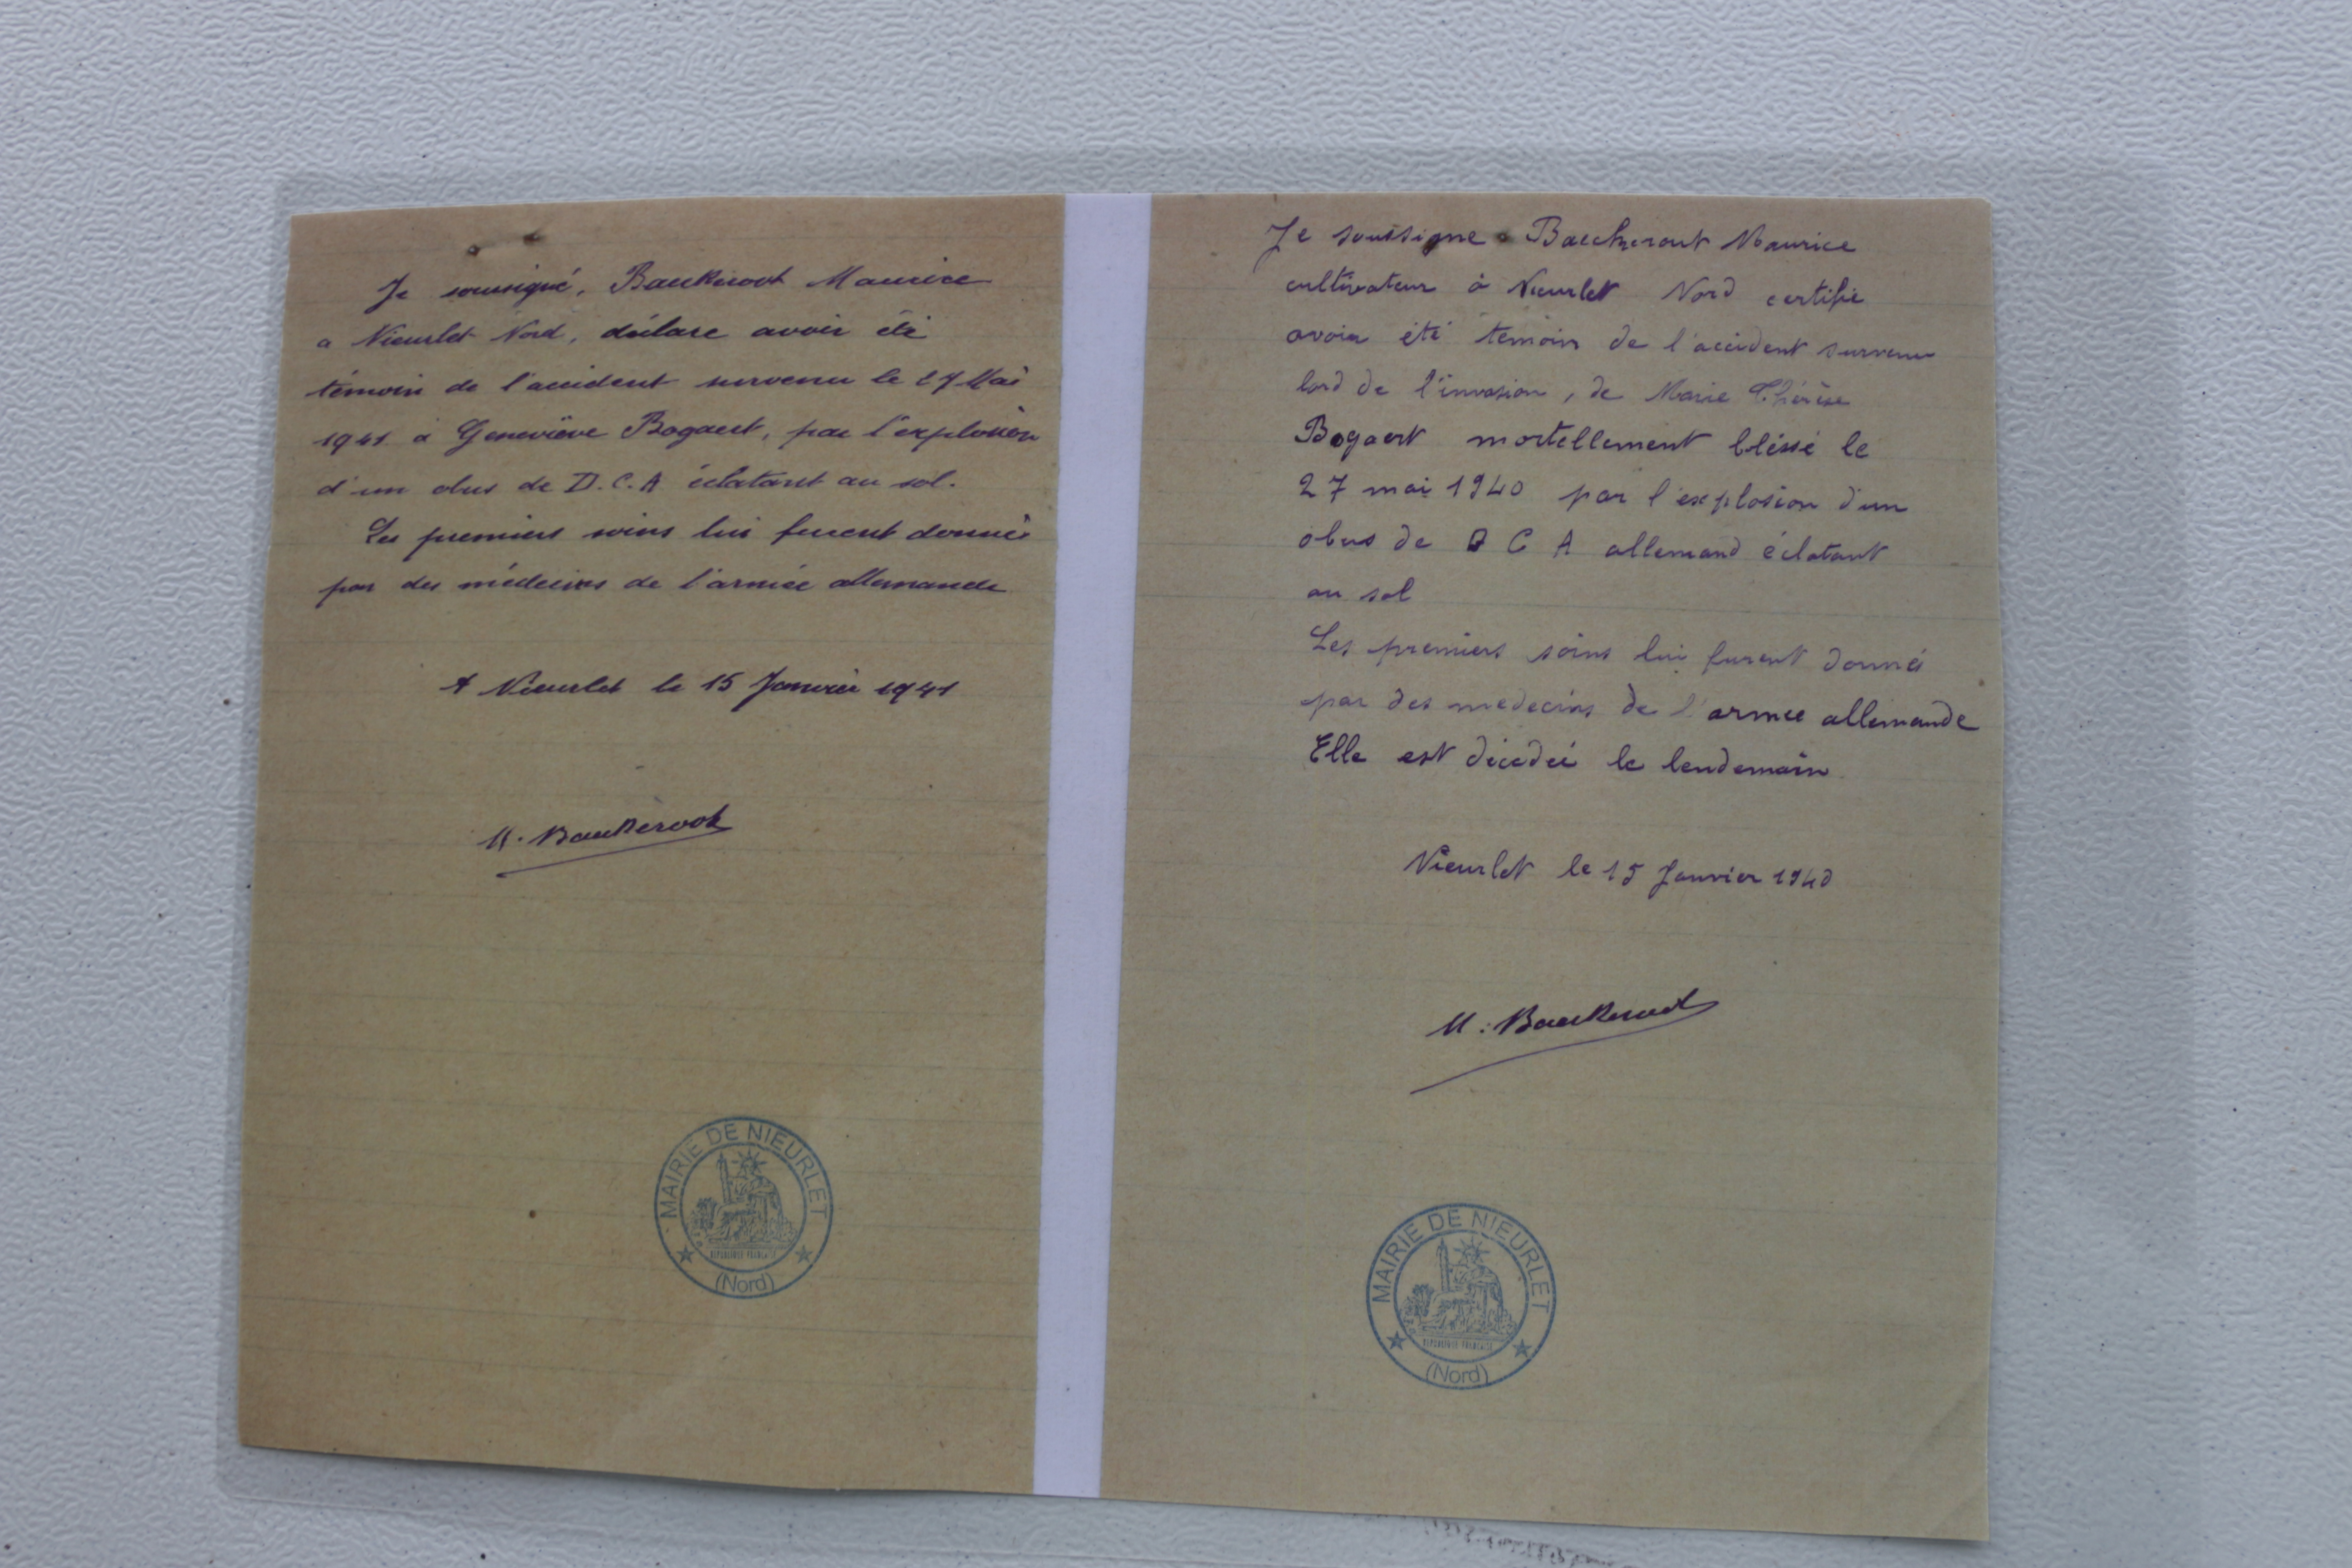 Je soussigné, Baeckeroot Maurice
a Nieurlet Nord, déclare avoir été
témoin de l'accident survenu le 27 Mai
1941 à Geneviève Bogaert, par l'explosion
d'un obus de D.C.A éclatant au sol.
Les premiers soins lui furent donnés
par des médecins de l'armée allemande
A Nieurlet le 15 Janvier 1941
M. Baeckeroot
MAIRIE DE NIEURLET
REPUBLIQUE FRANCAISE
(Nord)
Je soussigne Baeckeroot Maurice
cultivateur à Nieurlet Nord certifie
avoir été témoin de l'accident survenu
lord de l'invasion, de Marie Thérèse
Bogaert mortellement bléssé le
27 mai 1940 par l'explosion d'un
obus de D C A allemand éclatant
au sol
Les premiers soins lui furent donnés
par des medecins de l'armee allemande
Elle est décédée le lendemain
Nieurlet le 15 Janvier 1940
M. Baeckeroot
MAIRIE DE NIEURLET
REPUBLIQUE FRANCAISE
(Nord)